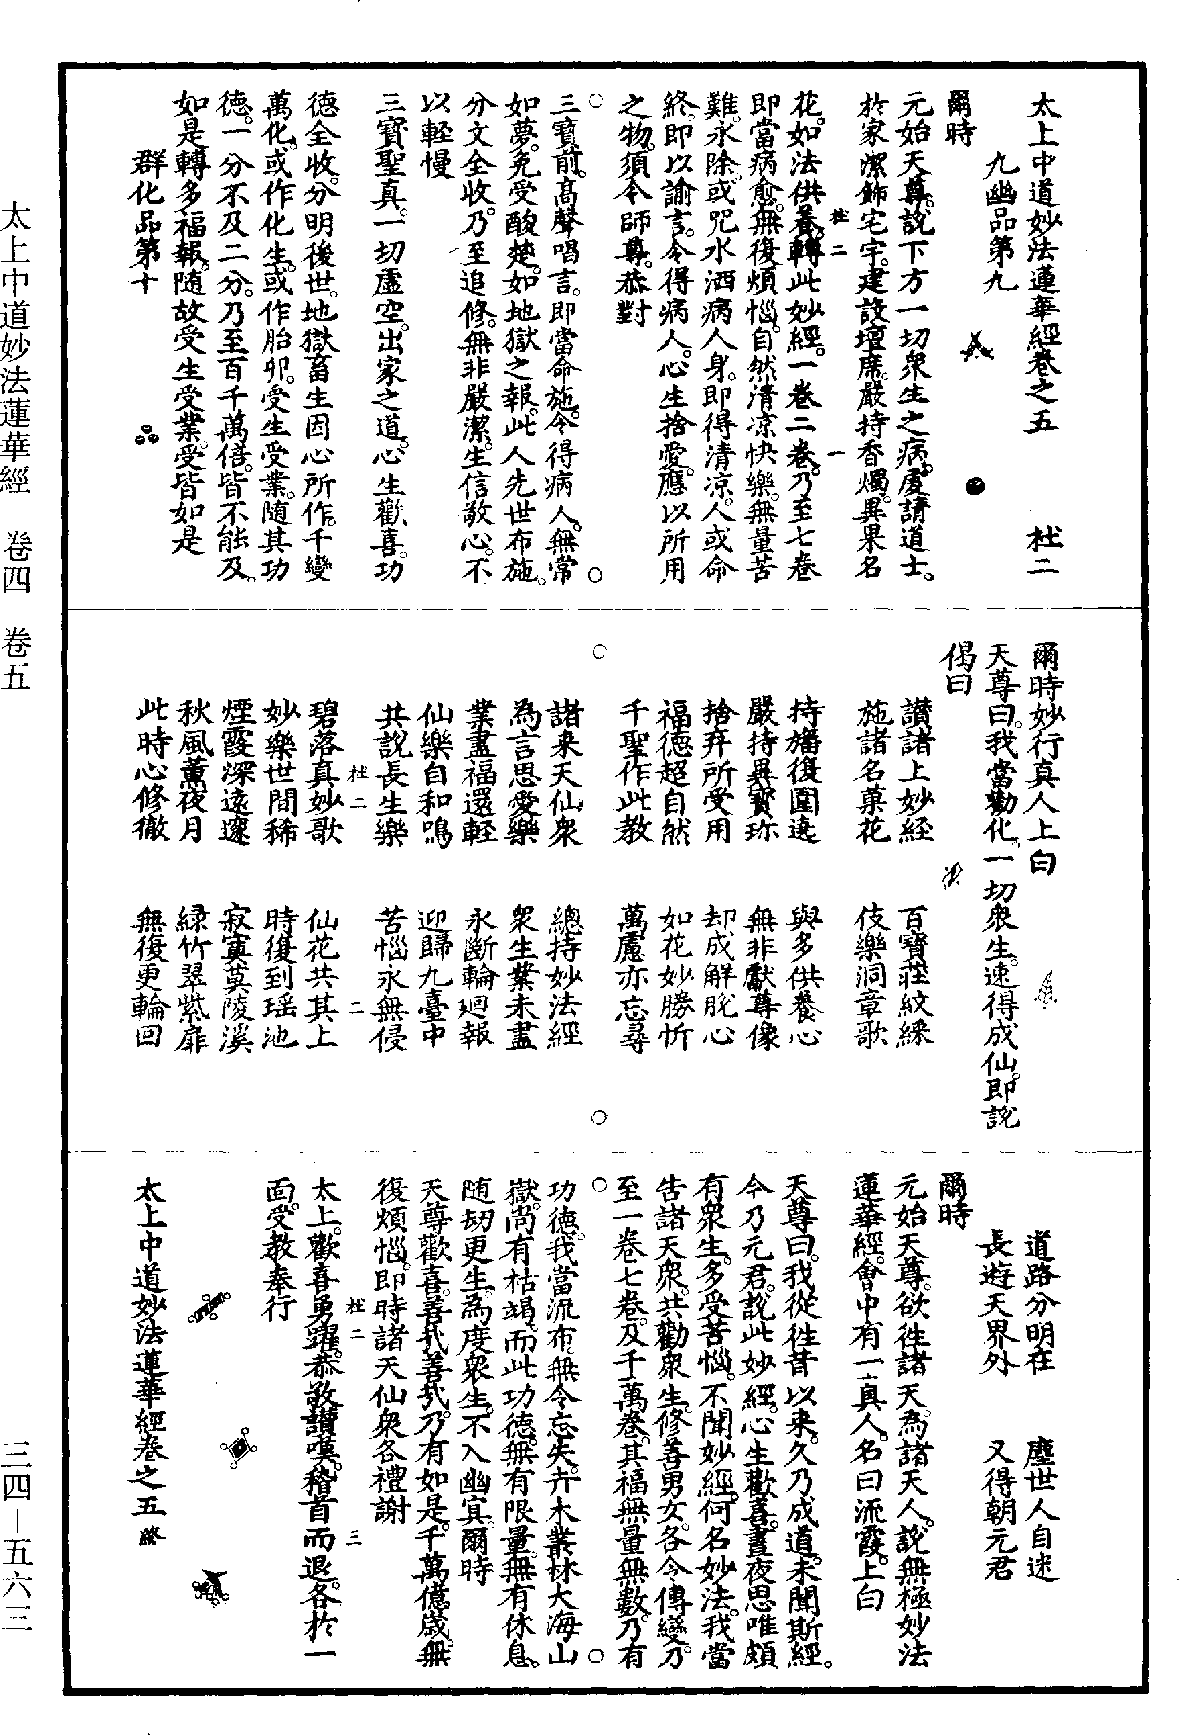 太上中道妙法蓮華經卷之五　杜二
九幽品第九
爾時
元始天尊。說下方一切衆生之病。廣請道士。
於家潔飾宅宇。建設壇席。嚴持香燭。異果名
花。如法供養。轉此妙經。一卷二卷。乃至七卷
即當病愈。無復煩惱。自然清涼快樂。無量苦
難。永除。或咒水洒病人身。即得清凉。人或命
終。即以諭言。令得病人。心生捨愛。應以所用
之物。須令師尊。恭對
三寶前。高聲唱言。即當命施。令得病人。無常
如夢。免受酸楚。如地獄之報。此人先世布施。
分文全收。乃至追修。無非嚴潔。生信敬心。不
以輕慢
三寶聖真。一切虛空。出家之道。心生歡喜。功
德全收。分明後世。地獄畜生因心所作。千變
萬化。或作化生。或作胎卵。受生受業。隨其功
德。一分不及二分。乃至百千萬倍。皆不能及。
如是轉多福報。隨故受生受業。受皆如是
群化品第十
爾時妙行真人上白
天尊曰。我當勸化。一切衆生。速得成仙。即說
偈曰
讚諸上妙經　百寶莊紋綵
施諸名菓花　伎樂洞章歌
持旛復圍遶　與多供養心
嚴持異寶珎　無非獻尊像
捨弃所受用　却成解脫心
福德超自然　如花妙勝忻
千聖作此教　萬慮亦忘尋
諸來天仙衆　總持妙法經
為言思愛樂　衆生業未盡
業盡福還輕　永斷輪迴報
仙樂自和鳴　迎歸九臺中
共說長生樂　苦惱永無侵
碧落真妙歌　仙花共其上
妙樂世間稀　時復到瑶池
煙霞深遠邃　寂寞莫陵溪
秋風薰夜月　緑竹翠紫扉
此時心修徹　無復更輪回
道路分明在　塵世人自迷
長遊天界外　又得朝元君
爾時
元始天尊。欲徃諸天。為諸天人。說無極妙法
蓮華經。會中有一真人。名曰流霞。上白
天尊曰。我從徃昔以来。久乃成道。未聞斯經。
今乃元君。說此妙經。心生歡喜。晝夜思唯。頗
有衆生。多受苦惱。不聞妙經。何名妙法。我當
告諸天衆。共勸衆生。修善男女。各令傳變。乃
至一卷七卷。及千萬卷。其福無量無數。乃有
功德。我當流布。無令忘失。卉木叢林大海山
獄。尚有枯竭。而此功德。無有限量。無有休息。
随刼更生。為度衆生。不入幽㝠。爾時
天尊歡喜。善㢤善㢤。乃有如是。千萬億歲。無
復煩惱。即時諸天仙衆各禮謝
太上。歡喜勇躍。恭敬讃嘆。稽首而退。各於一
面。受教奉行
太上中道妙法蓮華經卷之五　終
杜二　一
杜二　二
杜二　三
太上中道妙法蓮華經　卷四　卷五　三四－五六三